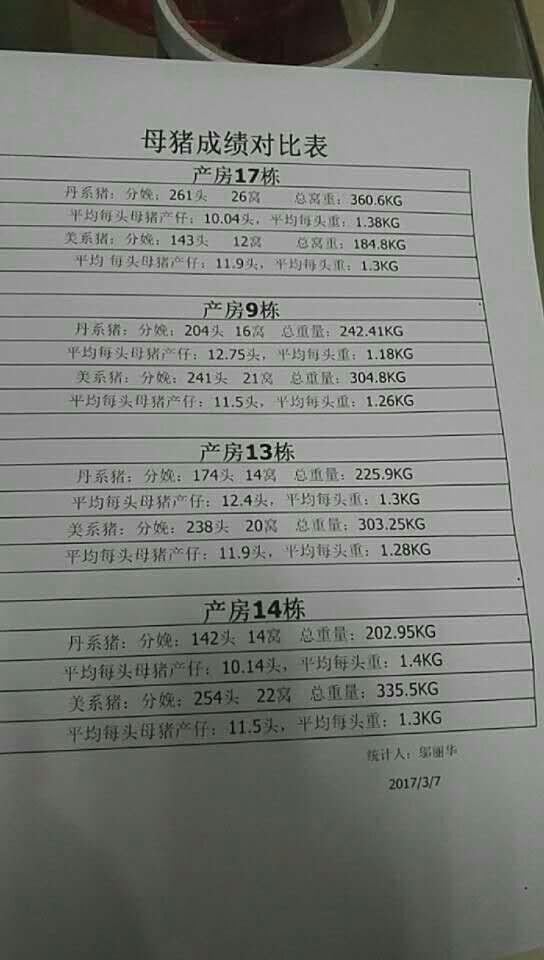 母猪成绩对比表
产房17栋
丹系猪：分娩：261头 26窝 总窝重：360.6KG
平均每头母猪产仔：10.04头，平均每头重：1.38KG
美系猪：分娩：143头 12窝 总窝重：184.8KG
平均 每头母猪产仔：11.9头，平均每头重：1.3KG
产房9栋
丹系猪：分娩：204头 16窝 总重量：242.41KG
平均每头母猪产仔：12.75头，平均每头重：1.18KG
美系猪：分娩：241头 21窝 总重量：304.8KG
平均每头母猪产仔：11.5头，平均每头重：1.26KG
产房13栋
丹系猪：分娩：174头 14窝 总重量：225.9KG
平均每头母猪产仔：12.4头，平均每头重：1.3KG
美系猪：分娩：238头 20窝 总重量：303.25KG
平均每头母猪产仔：11.9头，平均每头重：1.28KG
产房14栋
丹系猪：分娩：142头 14窝 总重量：202.95KG
平均每头母猪产仔：10.14头，平均每头重：1.4KG
美系猪：分娩：254头 22窝 总重量：335.5KG
平均每头母猪产仔：11.5头，平均每头重：1.3KG
统计人：邬丽华
2017/3/7